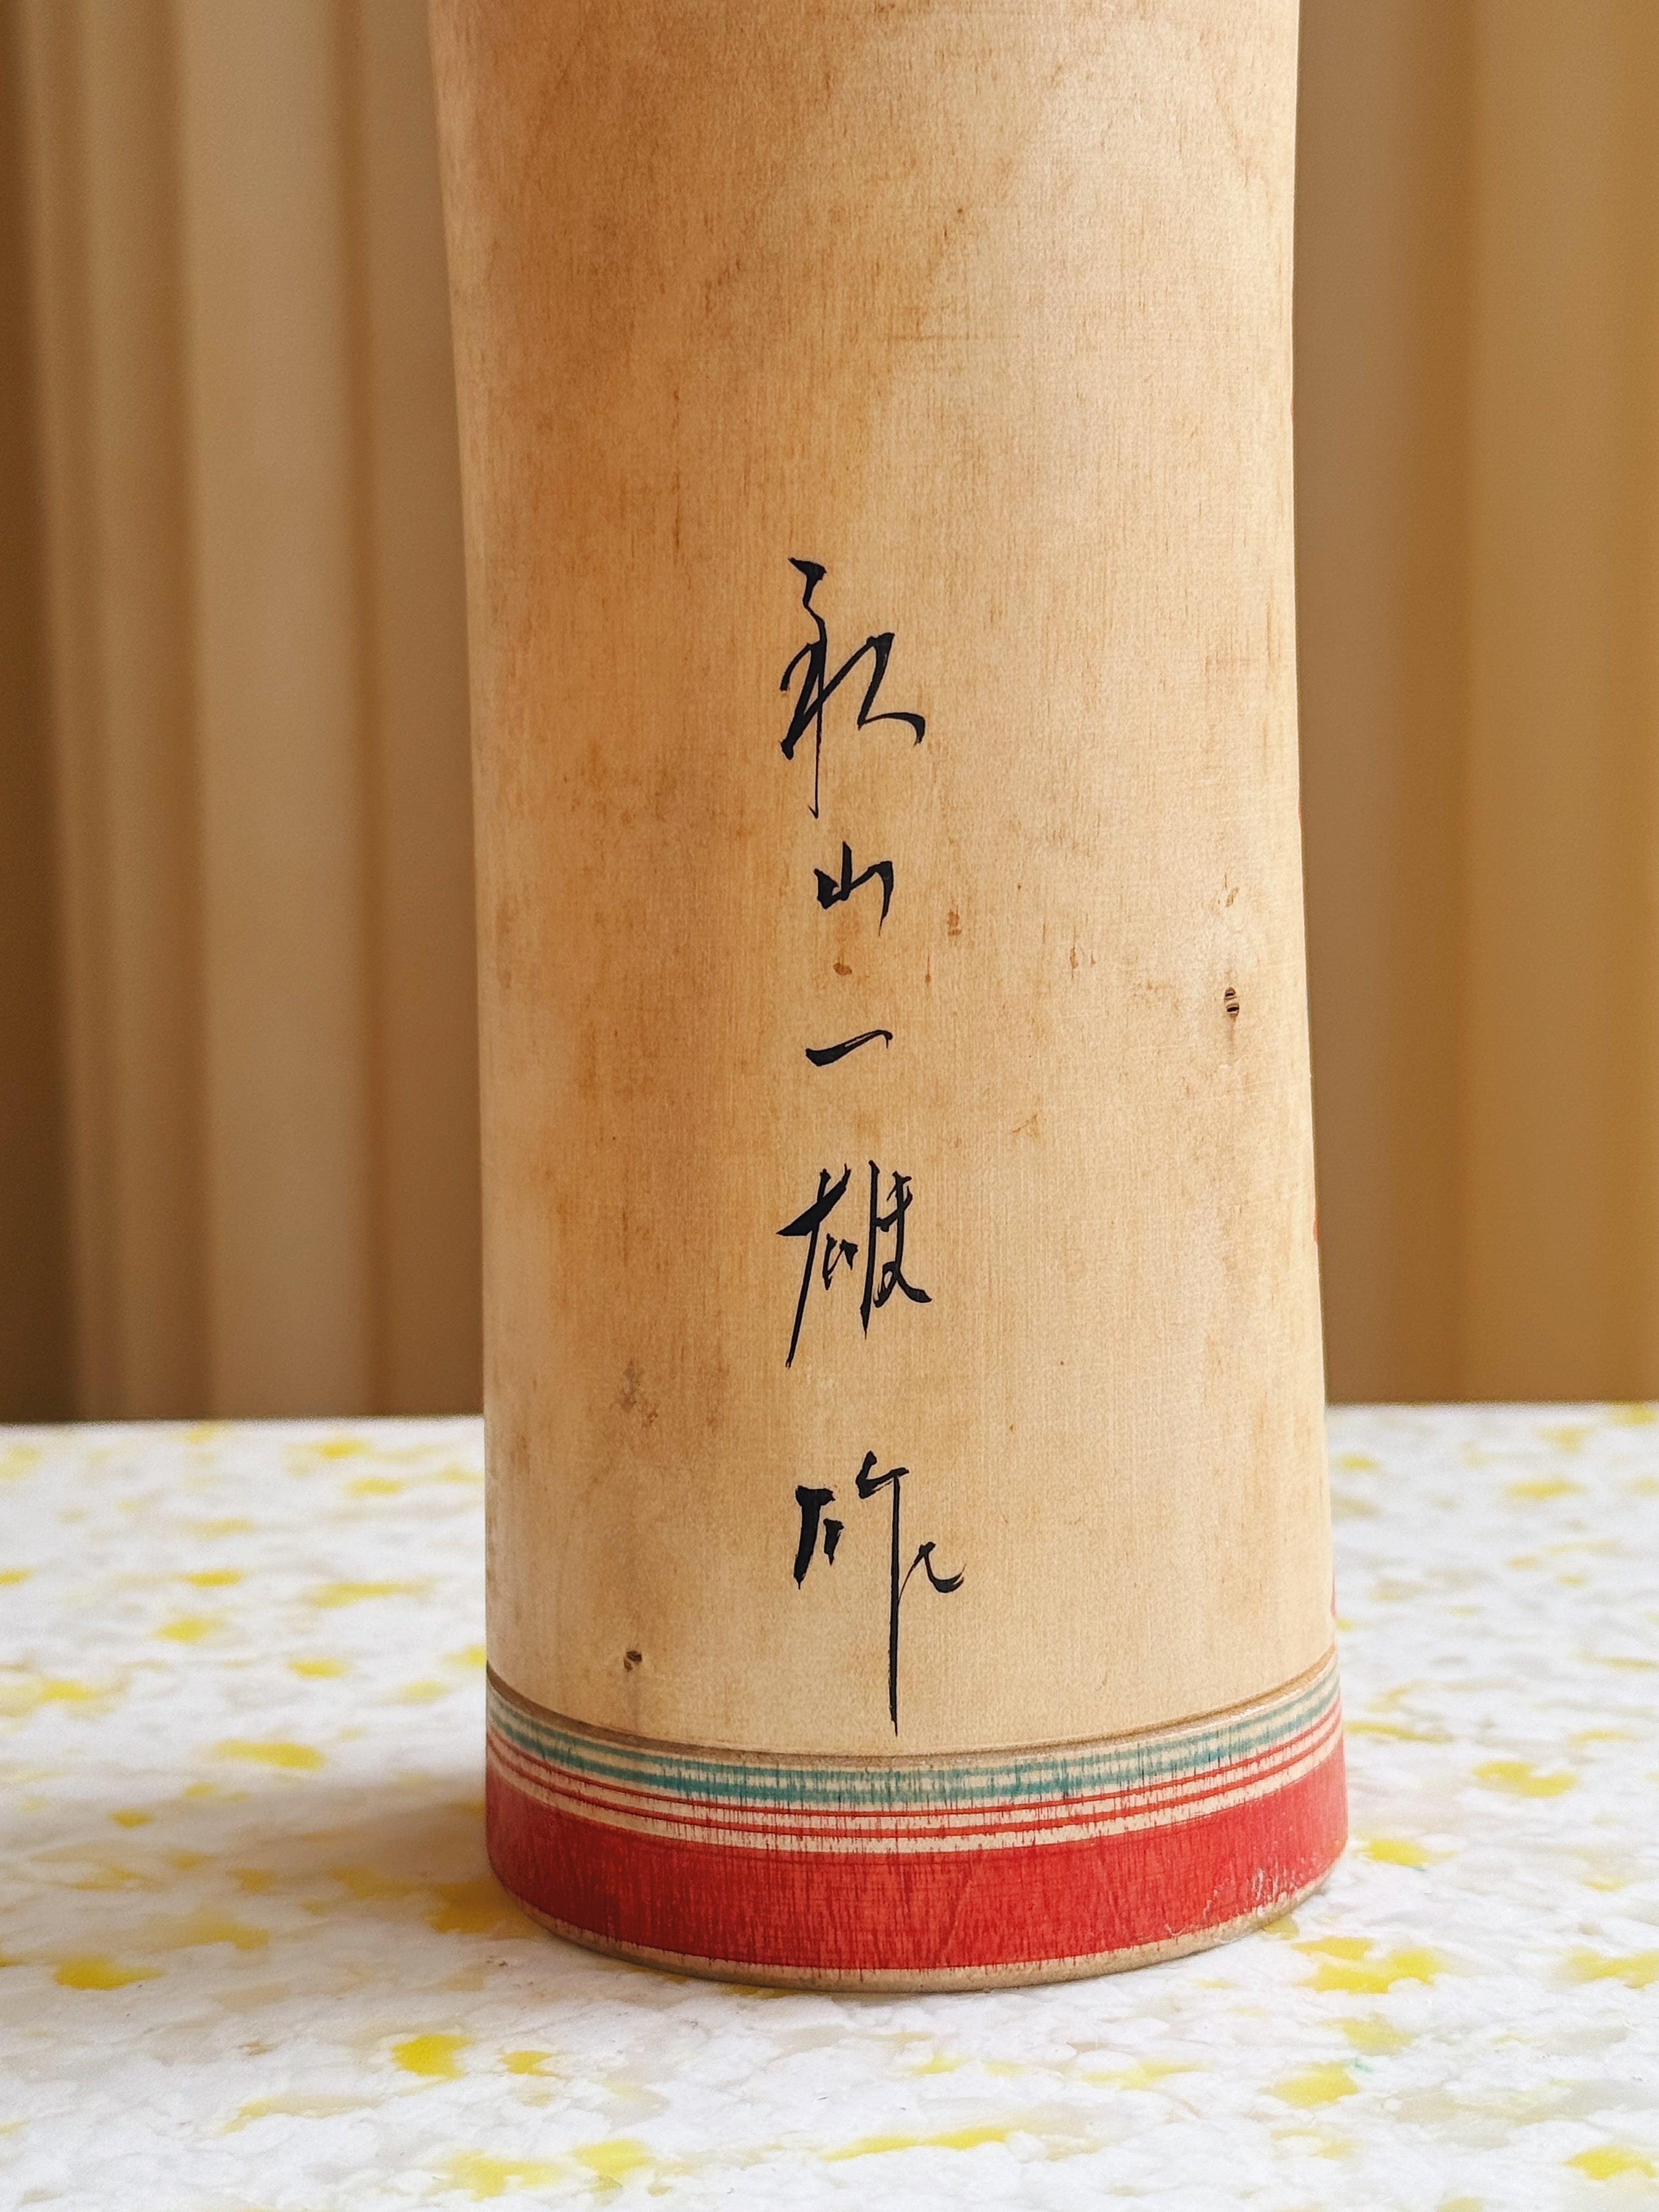 永山一雄作